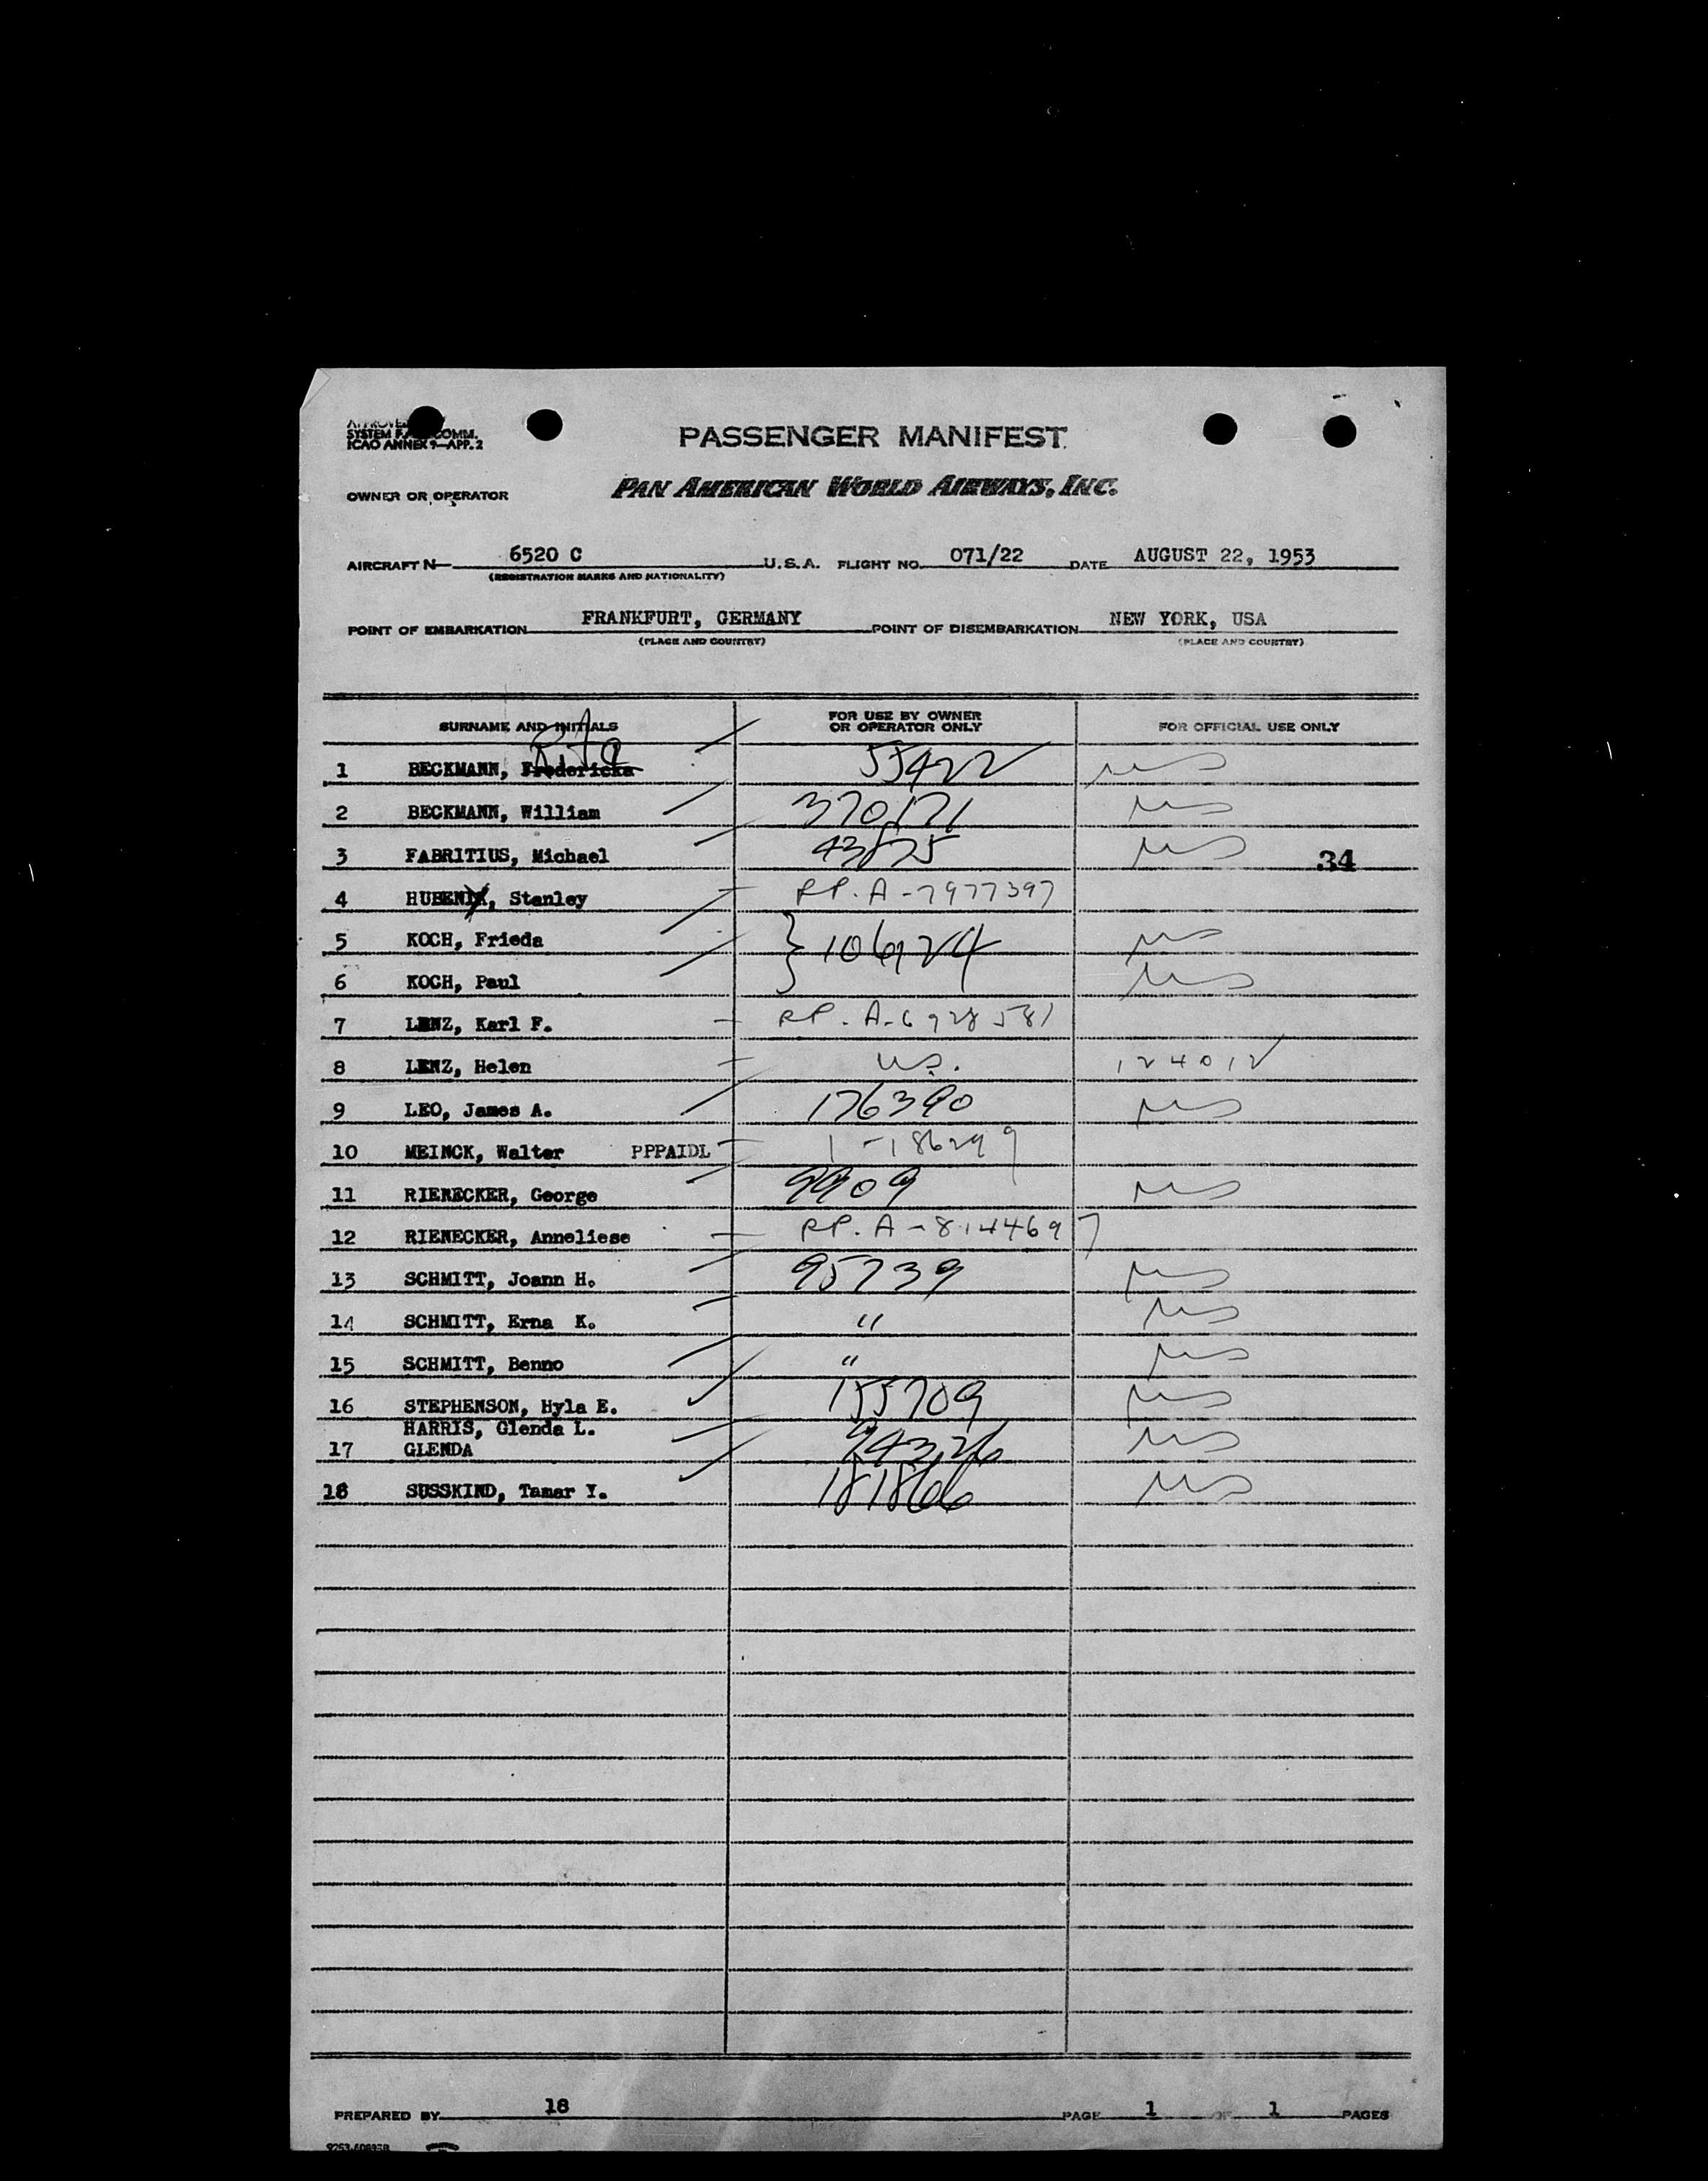 APPROVED BY
SYSTEM F.A.L. COMM.
ICAO ANNEX 9—APP. 2
PASSENGER MANIFEST
OWNER OR OPERATOR PAN AMERICAN WORLD AIRWAYS, INC.
AIRCRAFT N— 6520 C U.S.A. FLIGHT NO. 071/22 DATE AUGUST 22, 1953
(REGISTRATION MARKS AND NATIONALITY)
POINT OF EMBARKATION FRANKFURT, GERMANY POINT OF DISEMBARKATION NEW YORK, USA
(PLACE AND COUNTRY) (PLACE AND COUNTRY)
SURNAME AND INITIALS FOR USE BY OWNER OR OPERATOR ONLY FOR OFFICIAL USE ONLY
Rita
1 BECKMANN, Fredericka 55422 US
2 BECKMANN, William 370171 US
3 FABRITIUS, Michael 43825 US 34
4 HUBENIK, Stanley RP. A-7977397
5 KOCH, Frieda } 106124 US
6 KOCH, Paul US
7 LENZ, Karl F. RP. A-6928581
8 LENZ, Helen US. 124012
9 LEO, James A. 176390 US
10 MEINCK, Walter PPPAIDL 1-186299
11 RIENECKER, George 9909 US
12 RIENECKER, Anneliese RP. A-8144697
13 SCHMITT, Joann H. 95739 US
14 SCHMITT, Erna K. " US
15 SCHMITT, Benno " US
16 STEPHENSON, Hyla E. 155709 US
HARRIS, Glenda L.
17 GLENDA US
18 SUSSKIND, Tamar Y. 181866 US
PREPARED BY 18 PAGE 1 OF 1 PAGES